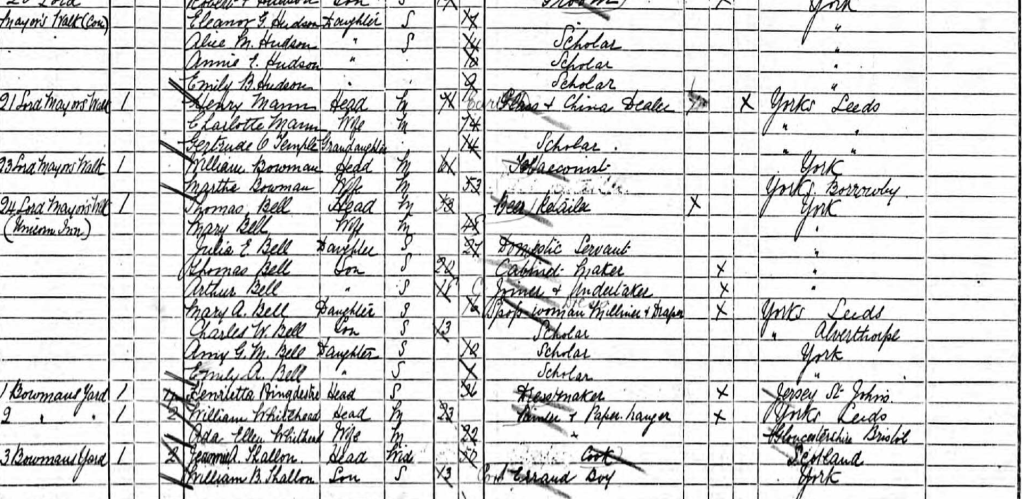 Lord Robert Hudson Son S Groom York
Mayor's Walk (Con) Eleanor G. Hudson Daughter S "
Alice M. Hudson " S 14 Scholar "
Annie E. Hudson " Scholar "
Emily B. Hudson " 9 Scholar "
21 Lord Mayor's Walk 1 Henry Mann Head M 71 Glass & China Dealer X Yorks Leeds
Charlotte Mann Wife M 74 " "
Gertrude C Temple Grandaughter 14 Scholar . " "
23 Lord Mayor's Walk 1 William Bowman Head M 61 Tobacconist York
Martha Bowman Wife M 53 Yorks Borrowby
24 Lord Mayor's Walk 1 Thomas Bell Head M Beer Retailer X York
(Unicorn Inn) Mary Bell Wife M 48 "
Julia E. Bell Daughter S 21 Domestic Servant "
Thomas Bell Son S 20 Cabinet Maker X "
Arthur Bell " S 18 Joiner & Undertaker X "
Mary A. Bell Daughter S 16 Shop woman Milliner & Draper X Yorks Leeds
Charles W. Bell Son S 13 Scholar " Alverthorpe
Amy G. M. Bell Daughter S Scholar York
Emily A. Bell " S Scholar "
1 Bowmans Yard 1 Henrietta Head S 36 Dressmaker X Jersey St Johns
2 " " 1 2 William Whitehead Head M 23 Painter & Paper hanger X Yorks Leeds
Ada Ellen Whitehead Wife M 22 " Gloucestershire Bristol
3 Bowmans Yard 1 2 Shallon Head Wid 50 Cook Scotland
William B. Shallon Son S 13 Errand Boy York